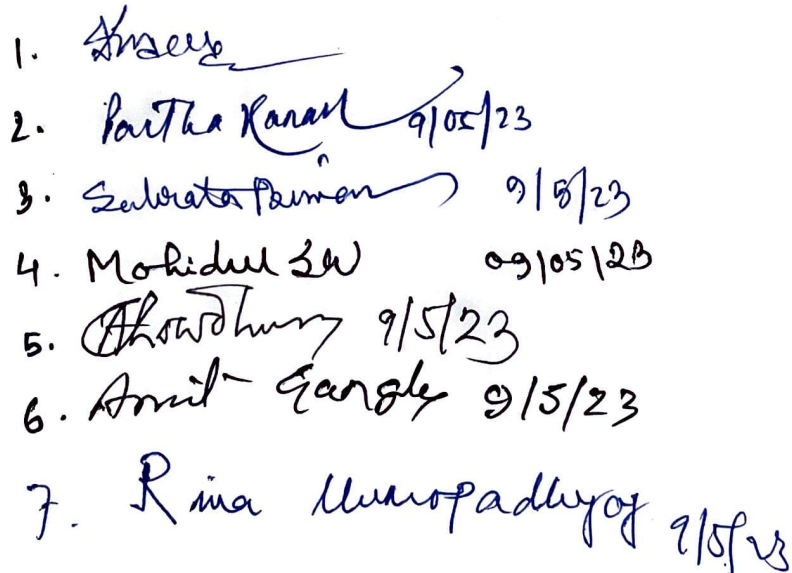 1.
2. Partha Karak 9/05/23
3. Subrata 9/5/23
4. Mohidul 09/05/23
5. Chowdhury 9/5/23
6. Amit Gangly 9/5/23
7. Rina Mukhopadhyay 9/5/23